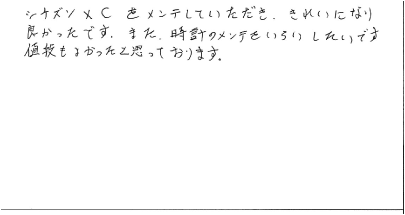 シチズン XC をメンテしていただき、きれいになり
良かったです。また、時計のメンテをいらい したいです
値段もよかったと思っております。